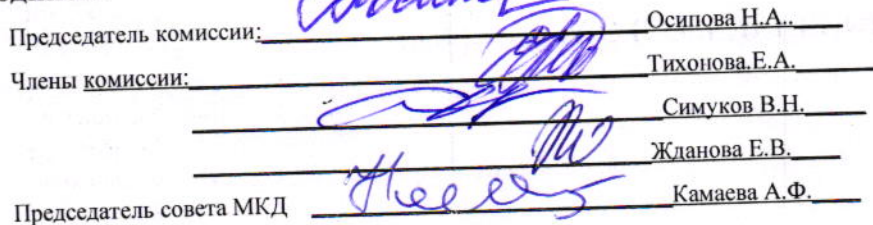 Председатель комиссии: Осипова Н.А..
Члены комиссии: Тихонова.Е.А.
Симуков В.Н.
Жданова Е.В.
Председатель совета МКД Камаева А.Ф.